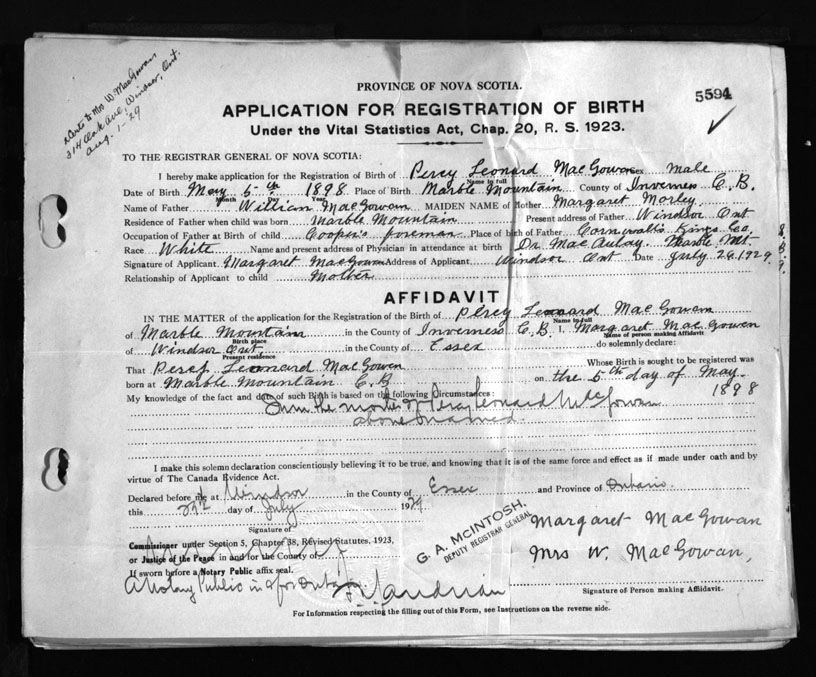 Cert to Mrs W. MacGowan
314 Oak Ave, Windsor, Ont.
Aug. 1-29
5594
PROVINCE OF NOVA SCOTIA.
APPLICATION FOR REGISTRATION OF BIRTH
Under the Vital Statistics Act, Chap. 20, R. S. 1923.
TO THE REGISTRAR GENERAL OF NOVA SCOTIA:
I hereby make application for the Registration of Birth of Percy Leonard MacGowan Sex male
Name in full
Date of Birth May 5th 1898 Place of Birth Marble Mountain County of Inverness C. B.
Month Day Year
Name of Father William MacGowan MAIDEN NAME of Mother Margaret Morley
Residence of Father when child was born Marble Mountain Present address of Father Windsor Ont
Occupation of Father at Birth of child Cooper's foreman Place of birth of Father Cornwallis Kings Co.
Race White Name and present address of Physician in attendance at birth Dr. MacAulay, Marble Mt.
Signature of Applicant Margaret MacGowan Address of Applicant Windsor Ont Date July 26, 1929
Relationship of Applicant to child Mother
AFFIDAVIT
IN THE MATTER of the application for the Registration of the Birth of Percy Leonard MacGowan
Name in full
of Marble Mountain in the County of Inverness C. B. I, Margaret MacGowan
Birth place Name of person making Affidavit
of Windsor Ont. in the County of Essex do solemnly declare:
Present residence
That Percy Leonard MacGowan Whose Birth is sought to be registered was
born at Marble Mountain C.B on the 5th day of May 1898
My knowledge of the fact and date of such Birth is based on the following Circumstances:
I am the mother of Percy Leonard McGowan
above named
I make this solemn declaration conscientiously believing it to be true, and knowing that it is of the same force and effect as if made under oath and by
virtue of The Canada Evidence Act.
Declared before me at Windsor in the County of Essex and Province of Ontario
this day of July 1929
Signature of
Commissioner under Section 5, Chapter 38, Revised Statutes, 1923,
or Justice of the Peace in and for the County of
If sworn before a Notary Public affix seal.
A Notary Public in & for Ontario
G. A. McINTOSH,
DEPUTY REGISTRAR GENERAL
Margaret MacGowan
Mrs W. MacGowan,
Signature of Person making Affidavit.
For Information respecting the filling out of this Form, see Instructions on the reverse side.